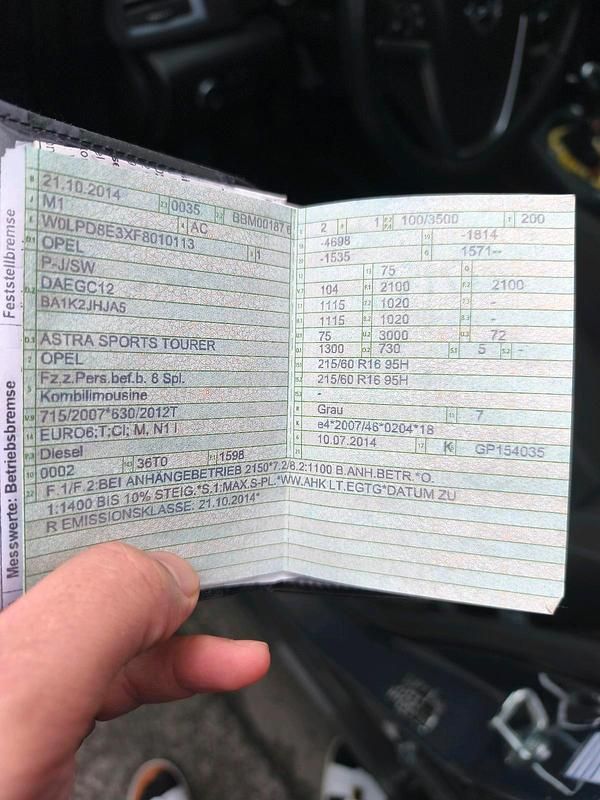 Feststellbremse
Messwerte: Betriebsbremse
21.10.2014
M1 0035 BBM00187
W0LPD8E3XF8010113 AC
OPEL
P-J/SW
DAEGC12
BA1K2JHJA5
ASTRA SPORTS TOURER
OPEL
Fz.z.Pers.bef.b. 8 Spl.
Kombilimousine
715/2007*630/2012T
EURO6;T;CI; M, N1 I
Diesel
0002 36T0 1598
F.1/F.2:BEI ANHÄNGEBETRIEB 2150*7.2/8.2:1100 B.ANH.BETR.*O.
1:1400 BIS 10% STEIG.*S.1:MAX.S-PL.*WW.AHK LT.EGTG*DATUM ZU
R EMISSIONSKLASSE: 21.10.2014*
2 1 100/3500 200
-4698 -1814
-1535 1571--
75
104 2100 2100
1115 1020 -
1115 1020 -
75 3000 72
1300 730 5 -
215/60 R16 95H
215/60 R16 95H
-
Grau 7
e4*2007/46*0204*18
10.07.2014 K GP154035